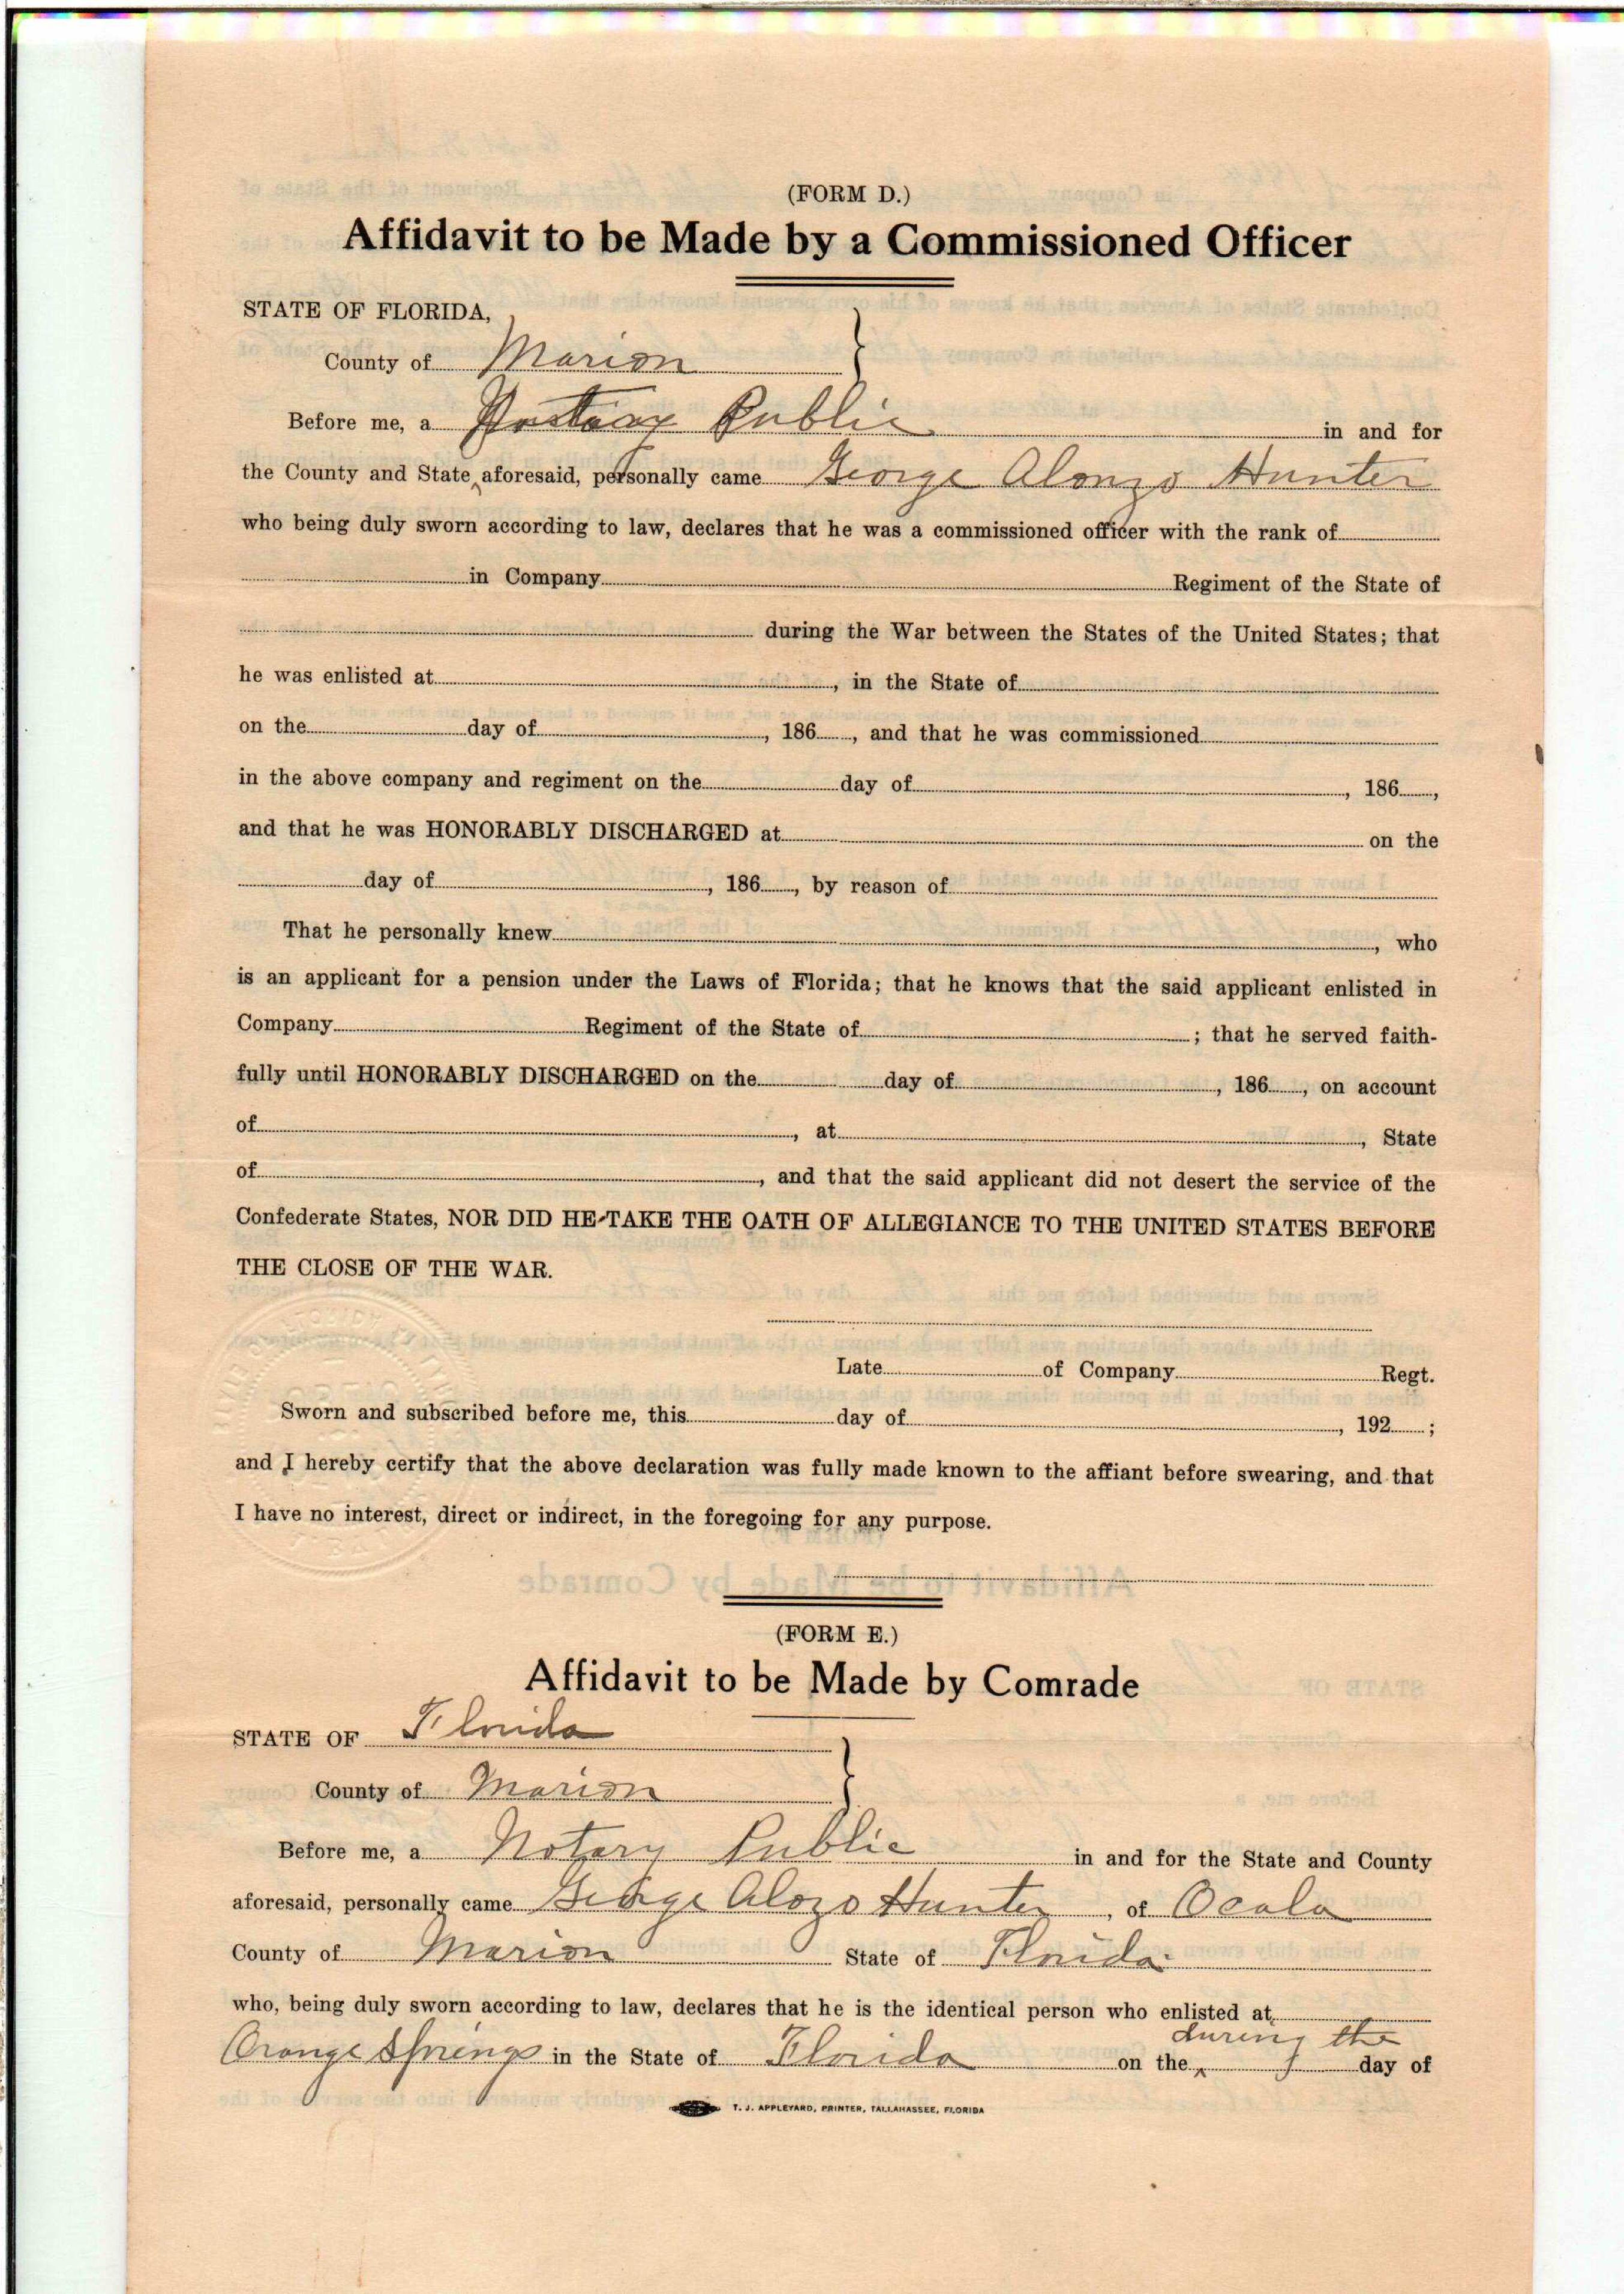 (FORM D.)
Affidavit to be Made by a Commissioned Officer
STATE OF FLORIDA,
County of Marion
Before me, a Public in and for
the County and State aforesaid, personally came George Alonzo Hunter
who being duly sworn according to law, declares that he was a commissioned officer with the rank of
in Company Regiment of the State of
during the War between the States of the United States; that
he was enlisted at , in the State of
on the day of , 186 , and that he was commissioned
in the above company and regiment on the day of , 186 ,
and that he was HONORABLY DISCHARGED at on the
day of , 186 , by reason of
That he personally knew , who
is an applicant for a pension under the Laws of Florida; that he knows that the said applicant enlisted in
Company Regiment of the State of ; that he served faith-
fully until HONORABLY DISCHARGED on the day of , 186 , on account
of , at , State
of , and that the said applicant did not desert the service of the
Confederate States, NOR DID HE TAKE THE OATH OF ALLEGIANCE TO THE UNITED STATES BEFORE
THE CLOSE OF THE WAR.
Late of Company Regt.
Sworn and subscribed before me, this day of , 192 ;
and I hereby certify that the above declaration was fully made known to the affiant before swearing, and that
I have no interest, direct or indirect, in the foregoing for any purpose.
(FORM E.)
Affidavit to be Made by Comrade
STATE OF Florida
County of Marion
Before me, a Notary Public in and for the State and County
aforesaid, personally came George Alozo Hunter , of Ocala
County of Marion State of Florida
who, being duly sworn according to law, declares that he is the identical person who enlisted at
during the
Orange Springs in the State of Florida on the day of
T. J. APPLEYARD, PRINTER, TALLAHASSEE, FLORIDA